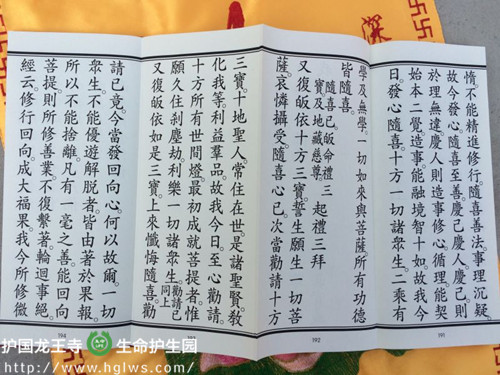 深
惰不能精進修行。隨喜善法。事理沉疑。
故今發心隨喜至善。慶己慶人。慶己則
於理無違。慶人則造事修心。循理能契
始本二覺。造事能融境智十如。故我今
日。發心隨喜。十方一切諸眾生。二乘有
191
學及無學。一切如來與菩薩。所有功德
皆隨喜。
隨喜已皈命禮三
寶及地藏慈尊 起禮三拜
又復皈依十方三寶。誓生願生一切菩
薩。哀憐攝受。隨喜心已。次當勸請十方
192
三寶。十地聖人。常住在世。是諸聖賢。敎
化我等。利益羣品。故我今日。至心勸請。
十方所有世間燈。最初成就菩提者。惟
願久住剎塵劫。利樂一切諸眾生。勸請已同上
又復皈依如是三寶。上來懺悔隨喜。勸
193
請已竟。今當發回向心。何以故爾。一切
眾生。不能優遊解脫者。皆由著於果報。
所以不能捨離。凡有一毫之善。能回向
菩提。則所修善業。不復繫著。輪迴事絕。
經云。修行回向。成大福果。我今所修微
194
护国龙王寺 生命护生园
网址:www.hglws.com